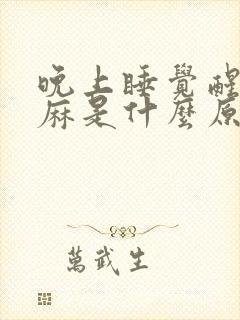 晚上睡覺醒
麻是什麼原
萬武生